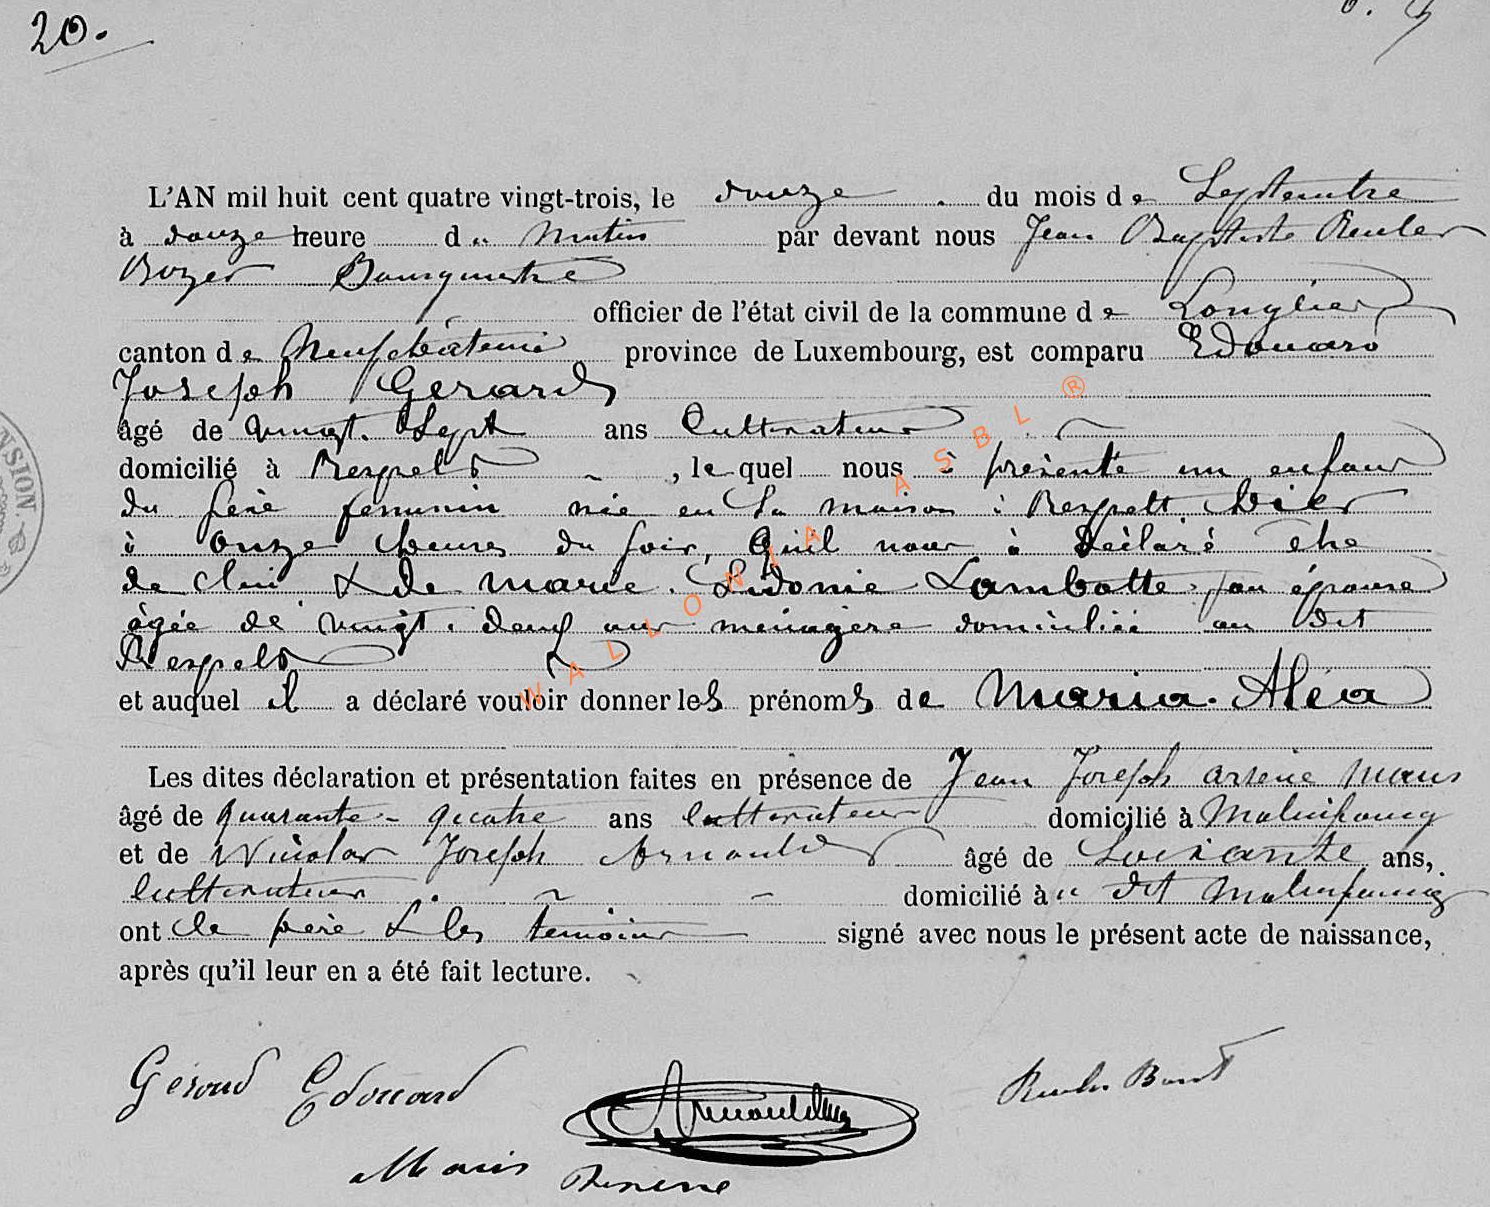 20.
L'AN mil huit cent quatre vingt-trois, le douze du mois de Septembre
à douze heure du Matin par devant nous Jean Baptiste Reuler
Bourgmestre
officier de l'état civil de la commune de Longlier
canton de Neufchâteau province de Luxembourg, est comparu Edouard
Joseph Gerard
âgé de vingt. Sept ans Cultivateur
domicilié à Respelt, lequel nous à présenté un enfant
du sexe feminin née en Sa maison à Respelt hier
à onze heures du soir, Qu'il nous à déclaré être
de lui & de marie. Sidonie Lambotte, son épouse
âgée de vingt. deux ans menagère domiciliée au dit
Respelt
et auquel il a déclaré vouloir donner les prénoms de Maria. Aléa
Les dites déclaration et présentation faites en présence de Jean Joseph arsene Maus
âgé de quarante-quatre ans cultivateur domicilié à Molinfaing
et de Nicolas Joseph Arnould âgé de Soixante ans,
Cultivateur domicilié au dit Molinfaing
ont le père & les témoins signé avec nous le présent acte de naissance,
après qu'il leur en a été fait lecture.
Gérard Edouard
Arnould
NSION
WALLONIA ASBL ®